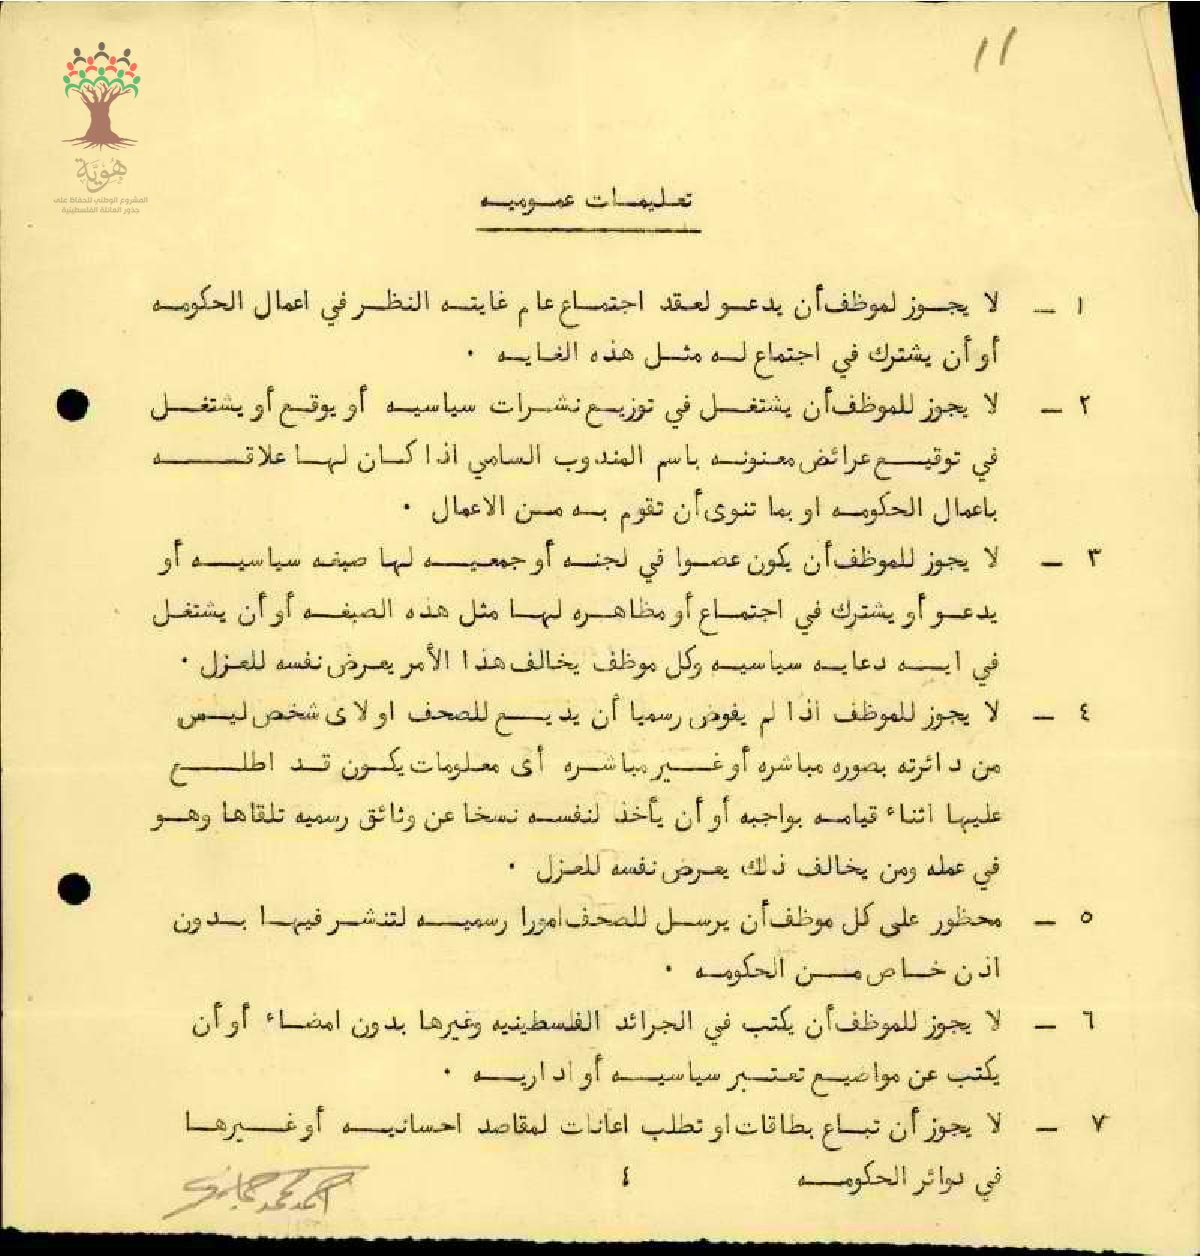 ١١
هُويَّة
المشروع الوطني للحفاظ على
جذور العائلة الفلسطينية
تعليمات عموميه
١ - لا يجوز لموظف أن يدعو لعقد اجتماع عام غايته النظر في اعمال الحكومه
أو أن يشترك في اجتماع له مثل هذه الغايه .
٢ - لا يجوز للموظف أن يشتغل في توزيع نشرات سياسيه أو يوقع أو يشتغل
في توقيع عرائض معنونه باسم المندوب السامي اذا كان لها علاقه
باعمال الحكومه او بما تنوى أن تقوم به من الاعمال .
٣ - لا يجوز للموظف أن يكون عضوا في لجنه أو جمعيه لها صبغه سياسيه أو
يدعو أو يشترك في اجتماع أو مظاهره لها مثل هذه الصبغه أو أن يشتغل
في ايه دعايه سياسيه وكل موظف يخالف هذا الأمر يعرض نفسه للعزل .
٤ - لا يجوز للموظف اذا لم يفوض رسميا أن يذيع للصحف او لاى شخص ليس
من دائرته بصوره مباشره أو غير مباشره أى معلومات يكون قد اطلع
عليها اثناء قيامه بواجبه أو أن يأخذ لنفسه نسخا عن وثائق رسميه تلقاها وهو
في عمله ومن يخالف ذلك يعرض نفسه للعزل .
٥ - محظور على كل موظف أن يرسل للصحف امورا رسميه لتنشر فيها بدون
اذن خاص من الحكومه .
٦ - لا يجوز للموظف أن يكتب في الجرائد الفلسطينيه وغيرها بدون امضاء أو أن
يكتب عن مواضيع تعتبر سياسيه أو اداريه .
٧ - لا يجوز أن تباع بطاقات او تطلب اعانات لمقاصد احسانيه أو غيرها
في دوائر الحكومه ٤
احمد محمد